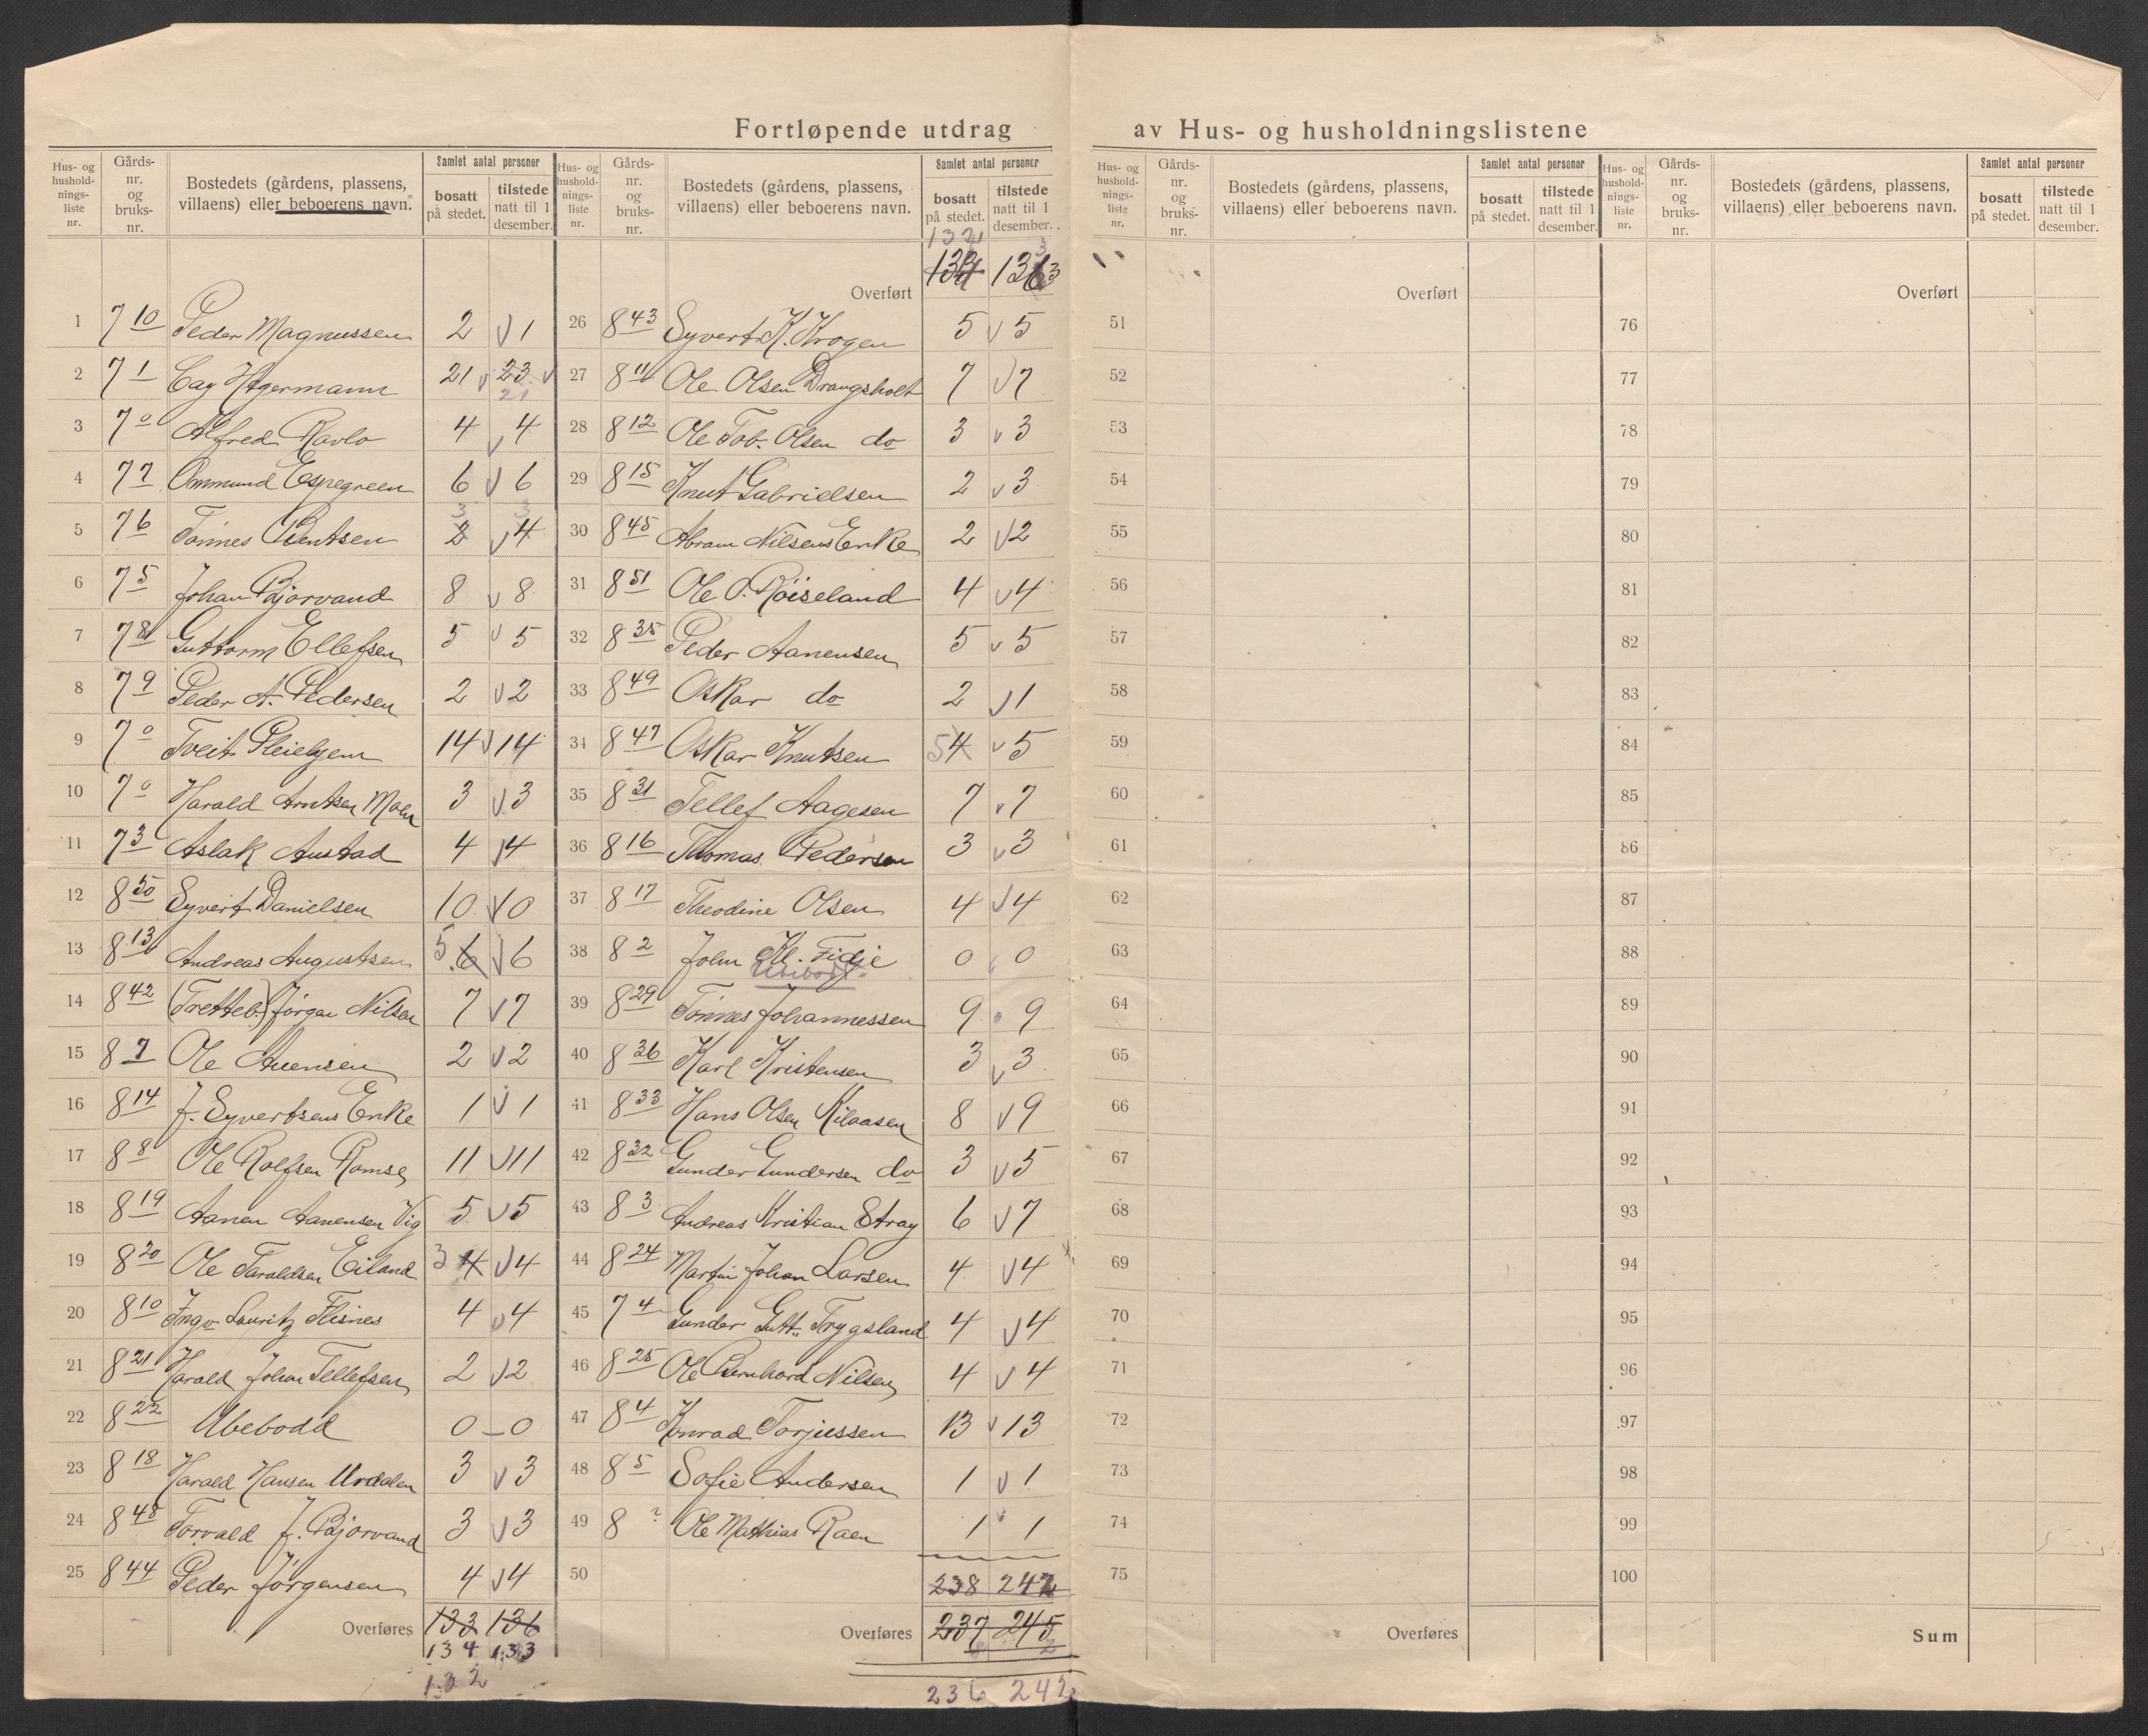 Fortløpende utdrag av Hus- og husholdningslistene
Hus- og husholdnings-liste nr. Gårds-nr. og bruks-nr. Bostedets (gårdens, plassens, villaens) eller beboerens navn. Samlet antal personer bosatt på stedet. tilstede natt til 1 desember.
1 7 10 Peder Magnussen 2 v 1
2 7 1 Cay Hegermann 21 v 23 v 21
3 7 0 Alfred Ravlo 4 v 4
4 7 7 Ommund Espegreen 6 v 6
5 7 6 Tønnes Bentsen 3 v 4 3
6 7 5 Johan Bjorvand 8 v 8
7 7 8 Guttorm Ellefsen 5 v 5
8 7 9 Peder A. Pedersen 2 v 2
9 7 0 Tveit Pleiehjem 14 v 14
10 7 0 Harald Arntsen Moen 3 v 3
11 7 3 Aslak Austad 4 v 4
12 8 50 Syvert Danielsen 10 v 10
13 8 13 Andreas Augustsen 5 6 v 6
14 8 42 (Tretteb.) Jørgen Nilsen 7 v 7
15 8 7 Ole Auensen 2 v 2
16 8 14 J. Syvertsens Enke 1 v 1
17 8 8 Ole Rolfsen Romse 11 v 11
18 8 19 Aanen Aanensen Vig 5 v 5
19 8 20 Ole Taraldsen Eiland 3 4 v 4
20 8 10 Ingv Lauritz Flisnes 4 v 4
21 8 21 Harald Johan Tellefsen 2 v 2
22 8 22 Ubebodd 0 – 0
23 8 18 Harald Hansen Urdalen 3 v 3
24 8 48 Torvald J. Bjorvand 3 v 3
25 8 44 Peder Jørgensen 4 v 4
Overføres 133 136
134 133
132
Hus- og husholdnings-liste nr. Gårds-nr. og bruks-nr. Bostedets (gårdens, plassens, villaens) eller beboerens navn. Samlet antal personer bosatt på stedet. tilstede natt til 1 desember.
132
Overført 134 136 3
26 8 43 Syvert K. Krogen 5 v 5
27 8 11 Ole Olsen Drangsholt 7 v 7
28 8 12 Ole Tob. Olsen do 3 v 3
29 8 15 Knut Gabrielsen 2 v 3
30 8 45 Abram Nilsens Enke 2 v 2
31 8 51 Ole O. Røiseland 4 v 4
32 8 35 Peder Aanensen 5 v 5
33 8 49 Oskar do 2 v 1
34 8 47 Oskar Knutsen 5 4 v 5
35 8 31 Tellef Aagesen 7 v 7
36 8 16 Thomas Pedersen 3 v 3
37 8 17 Theodine Olsen 4 v 4
38 8 2 John Kl. Fidje 0 0
39 8 29 Tønnes Johannessen 9 9
40 8 36 Karl Kristensen 3 v 3
41 8 33 Hans Olsen Kilaasen 8 v 9
42 8 32 Gunder Gundersen do 3 v 5
43 8 3 Andreas Kristian Stray 6 v 7
44 8 24 Martin Johan Larsen 4 v 4
45 7 4 Gunder Gutt. Trygsland 4 v 4
46 8 25 Ole Bernhard Nilsen 4 v 4
47 8 4 Konrad Torjussen 13 v 13
48 8 5 Sofie Andersen 1 v 1
49 8 ? Ole Mathias Raen 1 v 1
50 238 242
Overføres 237 245
236 242
Hus- og husholdnings-liste nr. Gårds-nr. og bruks-nr. Bostedets (gårdens, plassens, villaens) eller beboerens navn. Samlet antal personer bosatt på stedet. tilstede natt til 1 desember.
Overført
51
52
53
54
55
56
57
58
59
60
61
62
63
64
65
66
67
68
69
70
71
72
73
74
75
Overføres
Hus- og husholdnings-liste nr. Gårds-nr. og bruks-nr. Bostedets (gårdens, plassens, villaens) eller beboerens navn. Samlet antal personer bosatt på stedet. tilstede natt til 1 desember.
Overført
76
77
78
79
80
81
82
83
84
85
86
87
88
89
90
91
92
93
94
95
96
97
98
99
100
Sum